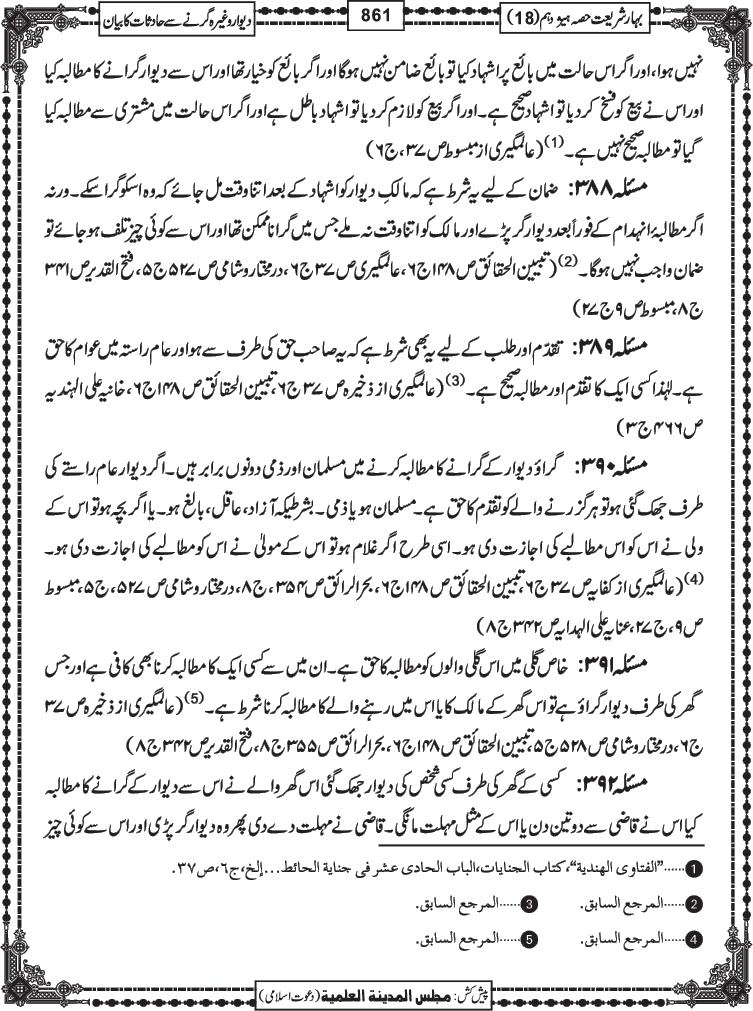 بہارِ شریعت حصہ ہیژدہم (18)
861
دیوار وغیرہ گرنے سے حادثات کا بیان
نہیں ہوا، اور اگر اس حالت میں بائع پر اشہاد کیا تو بائع ضامن نہیں ہوگا اور اگر بائع کو خیار تھا اور اس سے دیوار گرانے کا مطالبہ کیا
اور اس نے بیع کو فسخ کر دیا تو اشہاد صحیح ہے۔ اور اگر بیع کو لازم کر دیا تو اشہاد باطل ہے اور اگر اس حالت میں مشتری سے مطالبہ کیا
گیا تو مطالبہ صحیح نہیں ہے۔(1) (عالمگیری از مبسوط ص ۳۷، ج۶)
مسئلہ ۳۸۸: ضمان کے لیے یہ شرط ہے کہ مالکِ دیوار کو اشہاد کے بعد اتنا وقت مل جائے کہ وہ اسکو گرا سکے۔ ورنہ
اگر مطالبۂ انہدام کے فوراً بعد دیوار گر پڑے اور مالک کو اتنا وقت نہ ملے جس میں گرانا ممکن تھا اور اس سے کوئی چیز تلف ہو جائے تو
ضمان واجب نہیں ہوگا۔(2) (تبیین الحقائق ص ۱۴۸ ج۶، عالمگیری ص ۳۷ ج۶، درمختار وشامی ص ۵۲۷ ج۵، فتح القدیر ص ۳۴۱
ج۸، مبسوط ص ۹ ج۲۷)
مسئلہ ۳۸۹: تقدّم اور طلب کے لیے یہ بھی شرط ہے کہ یہ صاحب حق کی طرف سے ہو اور عام راستہ میں عوام کا حق
ہے۔ لہٰذا کسی ایک کا تقدّم اور مطالبہ صحیح ہے۔(3) (عالمگیری از ذخیرہ ص ۳۷ ج۶، تبیین الحقائق ص ۱۴۸ ج۶، خانیہ علی الہندیہ
ص ۴۶۶ ج۳)
مسئلہ ۳۹۰: گراؤ دیوار کے گرانے کا مطالبہ کرنے میں مسلمان اور ذمی دونوں برابر ہیں۔ اگر دیوار عام راستے کی
طرف جھک گئی ہو تو ہر گزرنے والے کو تقدّم کا حق ہے۔ مسلمان ہو یا ذمی۔ بشرطیکہ آزاد، عاقل، بالغ ہو۔ یا اگر بچہ ہو تو اس کے
ولی نے اس کو اس مطالبے کی اجازت دی ہو۔ اسی طرح اگر غلام ہو تو اس کے مولیٰ نے اس کو مطالبے کی اجازت دی ہو۔
(4) (عالمگیری از کفایہ ص ۳۷ ج۶، تبیین الحقائق ص ۱۴۸ ج۶، بحرالرائق ص ۳۵۴، ج۸، درمختار وشامی ص ۵۲۷، ج۵، مبسوط
ص ۹، ج۲۷، عنایہ علی الہدایہ ص ۳۴۲ ج۸)
مسئلہ ۳۹۱: خاص گلی میں اس گلی والوں کو مطالبہ کا حق ہے۔ ان میں سے کسی ایک کا مطالبہ کرنا بھی کافی ہے اور جس
گھر کی طرف دیوار گراؤ ہے تو اس گھر کے مالک کا یا اس میں رہنے والے کا مطالبہ کرنا شرط ہے۔(5) (عالمگیری از ذخیرہ ص ۳۷
ج۶، درمختار وشامی ص ۵۲۸ ج۵، تبیین الحقائق ص ۱۴۸ ج۶، بحرالرائق ص ۳۵۵ ج۸، فتح القدیر ص ۳۴۲ ج۸)
مسئلہ ۳۹۲: کسی کے گھر کی طرف کسی شخص کی دیوار جھک گئی اس گھر والے نے اس سے دیوار کے گرانے کا مطالبہ
کیا اس نے قاضی سے دو تین دن یا اس کے مثل مہلت مانگی۔ قاضی نے مہلت دے دی پھر وہ دیوار گر پڑی اور اس سے کوئی چیز
1......"الفتاوی الهندية"، كتاب الجنايات، الباب الحادى عشر فى جناية الحائط...إلخ، ج٦، ص٣٧.
2......المرجع السابق. 3......المرجع السابق.
4......المرجع السابق. 5......المرجع السابق.
پیش کش: مجلس المدينة العلمية (دعوت اسلامی)